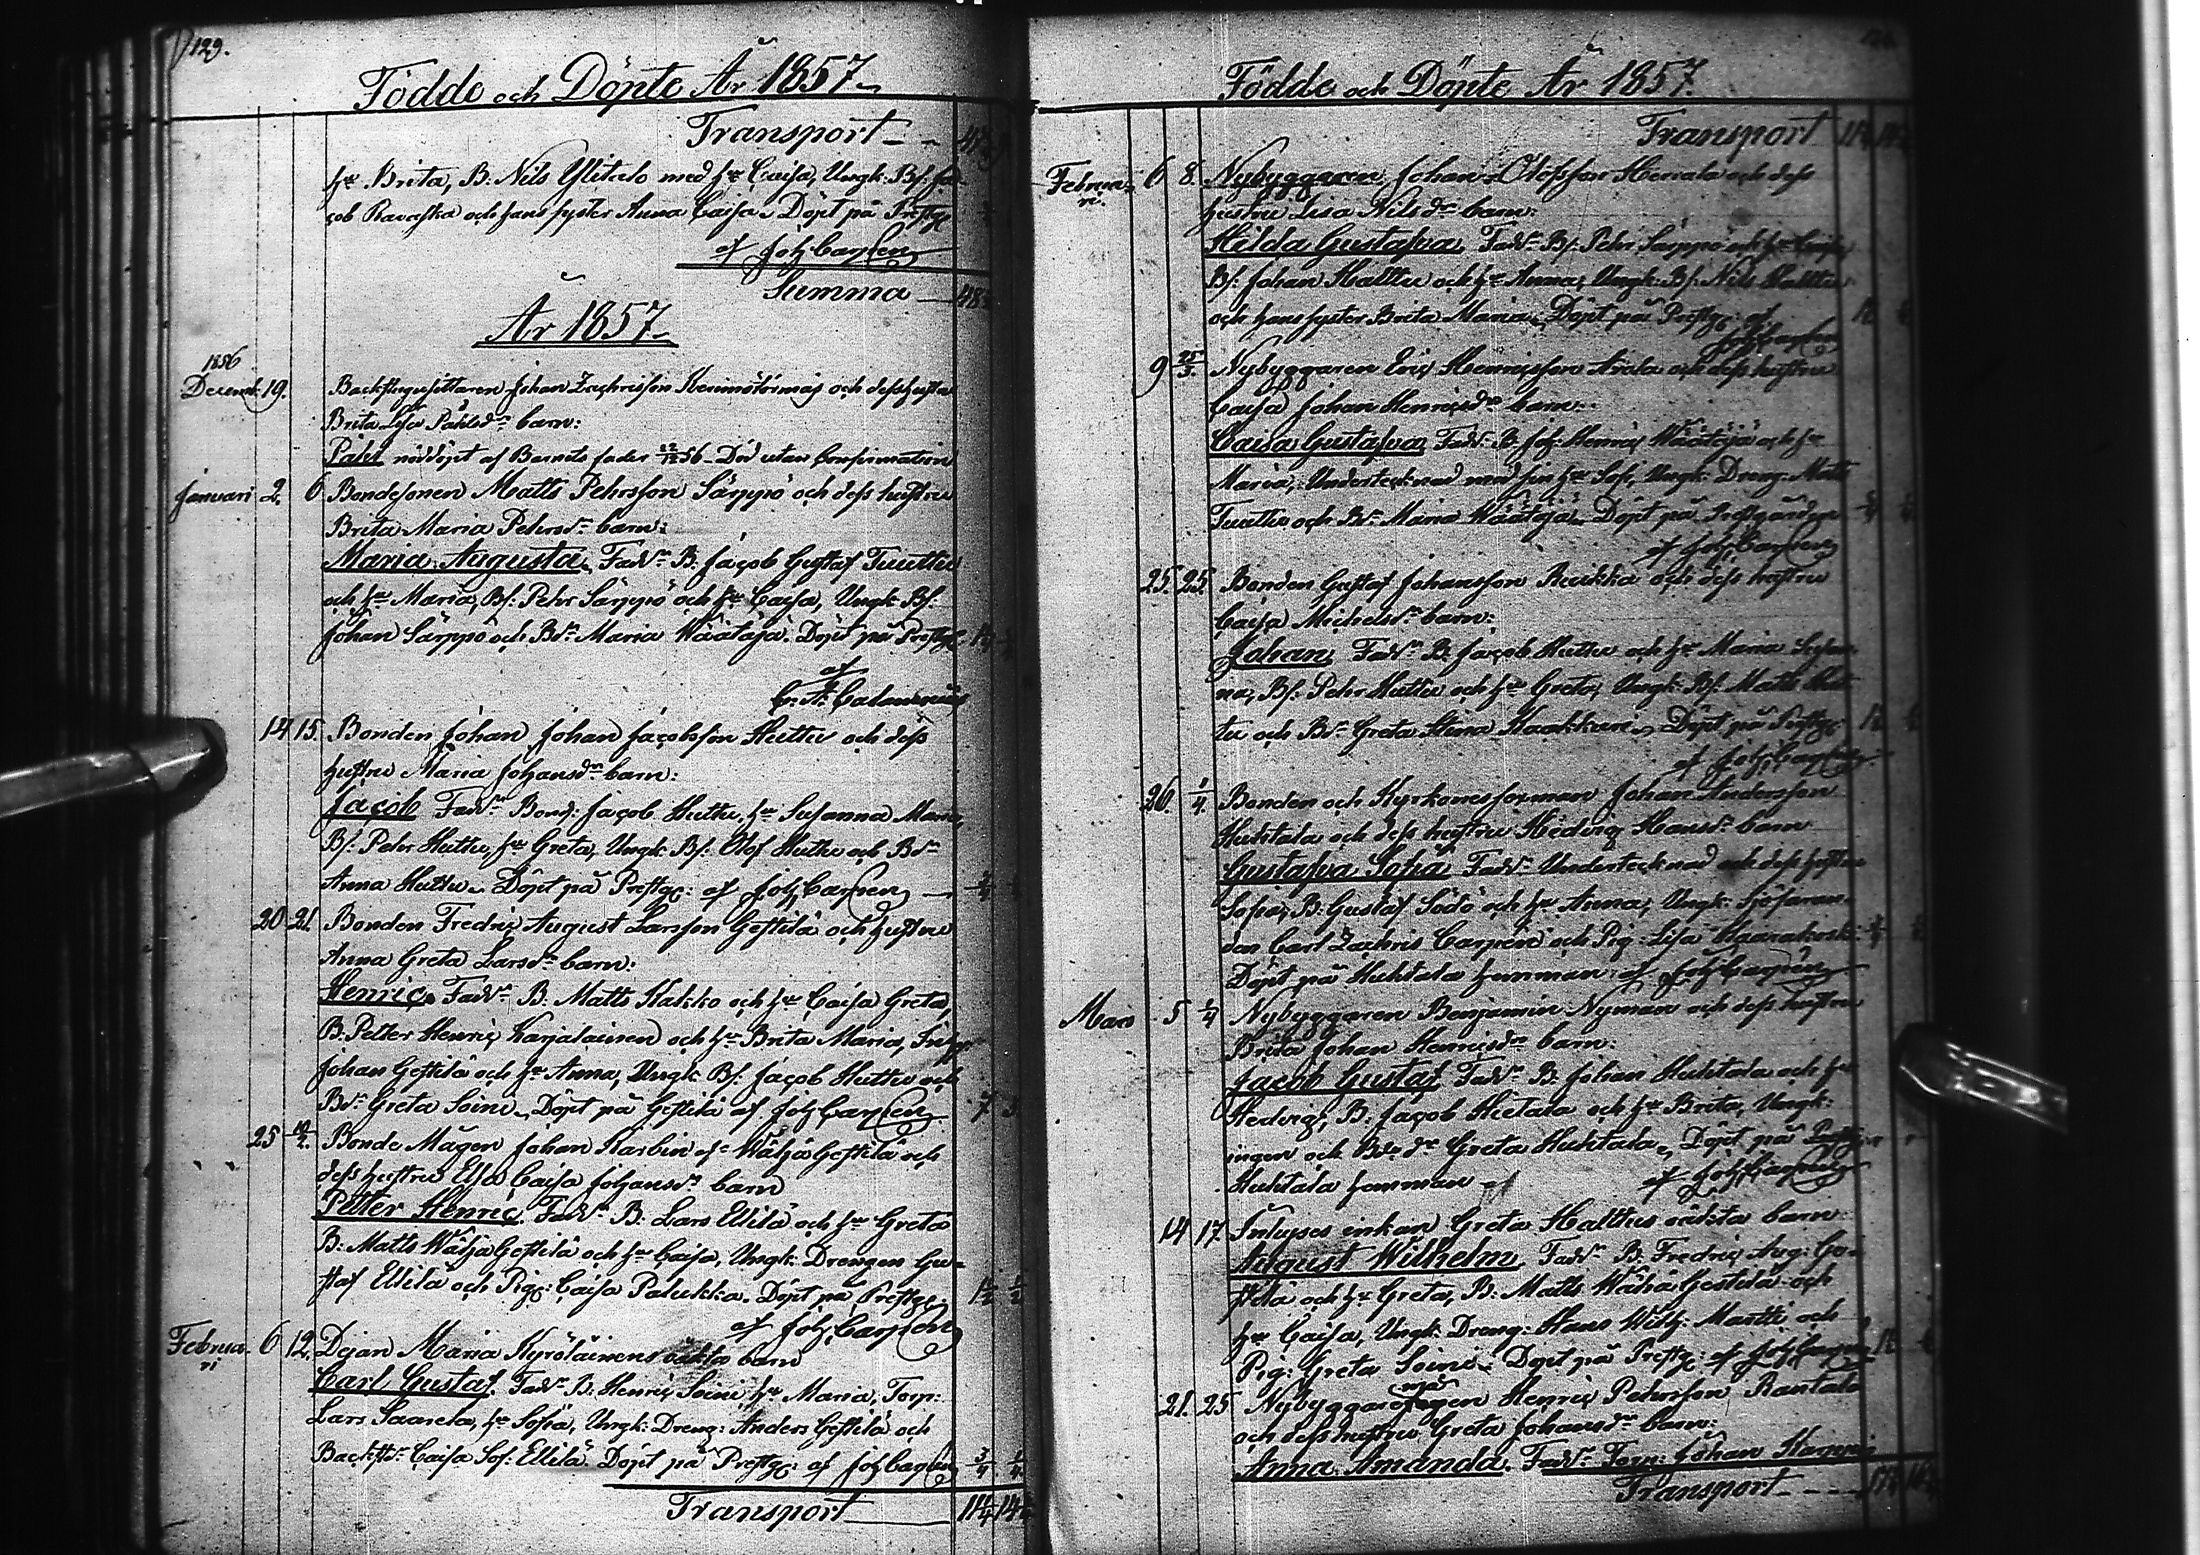 129.
Födde och Döpte År 1857
Transport
hu Brita, B: Nils Ylitalo med hu Caisa, Ungk: Bs: Ja-
cob Ravaska och hans syster Anna Caisa. Döpt på Prestg:
af Joh: Carpen
Summa
År 1857
1856
Decemb. 19. Backstugusittaren Johan Zachrisson och dess hustru
Brita Lisa Påhlsdr barn:
Påhl nöddöpt af Barnets fader 56. Död utan Confirmation
Januari 2. 6 Bondesonen Matts Pehrsson Särppö och dess hustru
Brita Maria Pehrsdr barn:
Maria Augusta. Faddr B: Jacob Gustaf Tuuttu
och hu Maria, Bs: Pehr Särppö och hu Caisa, Ungk: Bs:
Johan Särppö och Bdr Maria Wäätäjä. Döpt på Prestg:
af
C. A.
14 15 Bonden Johan Johan Jacobsson Huttu och dess
hustru Maria Johansdr barn:
Jacob Faddr Bond: Jacob Huttu, hu Susanna Maria,
Bs: Pehr Huttu, hu Greta, Ungk: Bs: Olof Huttu och Bdr
Anna Huttu. Döpt på Prestg: af Joh: Carpen
20 21. Bonden Fredric August Larsson Gestilä och hustru
Anna Greta Larsdr barn:
Henric. Faddr B: Matts Kakko och hu Caisa Greta,
B: Petter Henric Karjalainen och hu Brita Maria,
Johan Gestilä och hu Anna, Ungk: Bs: Jacob Huttu och
Bdr Greta Soini. Döpt på Gestilä af Joh: Carpen
25 Bonde Mågen Johan Karbin af Wälja Gestilä och
dess hustru Elsa Caisa Johansdr barn
Petter Henric. Faddr B: Lars Ellilä och hu Greta
B: Matts Wälja Gestilä och hu Caisa, Ungk: Drengen Gu-
staf Ellilä och Pig: Caisa Palukka. Döpt på Prestg:
af Joh: Carpen
Februa- 6 12. Dejan Maria Kyröläinens oäkta barn
ri
Carl Gustaf. Faddr B: Henric Soini, hu Maria, Torp:
Lars Saarela, hu Sofia, Ungk: Dreng: Anders Gestilä och
Backstdr Caisa Sof: Ellilä. Döpt på Prestg: af Joh: Carpen
Transport
Födde och Döpte År 1857.
Transport
Februa- 6 8. Nybyggaren Johan Olofsson och dess
ri. hustru Lisa Nilsdr barn:
Hilda Gustafva. Faddr Bs: Pehr Särppö och hu Caisa,
Bs: Johan Halttu och hu Anna, Ungk: Bs: Nils Halttu
och hans syster Brita Maria. Döpt på Prestg: af
Joh: Carpen
9 25/3 Nybyggaren Eric Henricsson Arala och dess hustru
Caisa Johan Henricsdr barn:
Caisa Gustafva. Faddr B: Joh: Henric Wäätäjä och hu
Maria, Undertecknad med sin hu Sofi, Ungk: Dreng: Matts
Tuuttu och Bdr Maria Wäätäjä. Döpt på Prestgården
af Joh: Carpen
25. 25. Bonden Gustaf Johansson Reukka och dess hustru
Caisa Michelsdr barn:
Johan. Faddr B: Jacob Huttu och hu Maria
na, Bs: Pehr Huttu och hu Greta, Ungk: Bs: Matts Hut-
tu och Bdr Greta Stina. Döpt på Prestg:
af Joh: Carpen
26. 1/4 Bonden och Kyrkovesserman Johan Andersson
Huhtala och dess hustru Hedvig Hansdr barn
Gustafva Sofia. Faddr Undertecknad och dess hustru
Sofia, B: Gustaf Södö och hu Anna, Ungk: Sjöfaran-
den Carl Zachris Carpen och Pig: Lisa
Döpt på Huhtala hemman af Joh: Carpen
Mars 5 1/4 Nybyggaren Benjamin Nyman och dess hustru
Brita Johan Henricsdr barn:
Jacob Gustaf Faddr B: Johan Huhtala och hu
Hedvig, B: Jacob Hietala och hu Brita, Ungk:
ingen och Bdr Greta Huhtala. Döpt på
Huhtala hemman af Joh: Carpen
14 17. Inhyses enkan Greta Halttus oäkta barn:
August Wilhelm. Faddr B: Fredric Aug: Ge-
stilä och hu Greta, B: Matts Wälja Gestilä och
hu Caisa, Ungk: Dreng: Hans Wilh: Martti och
Pig: Greta Soini. Döpt på Prestg: af Joh: Carpen
21. 25 Nybyggaremågen Henric Pehrsson Rantala
och dess hustru Greta Johansdr barn:
Anna Amanda. Faddr Torp: Johan
Transport